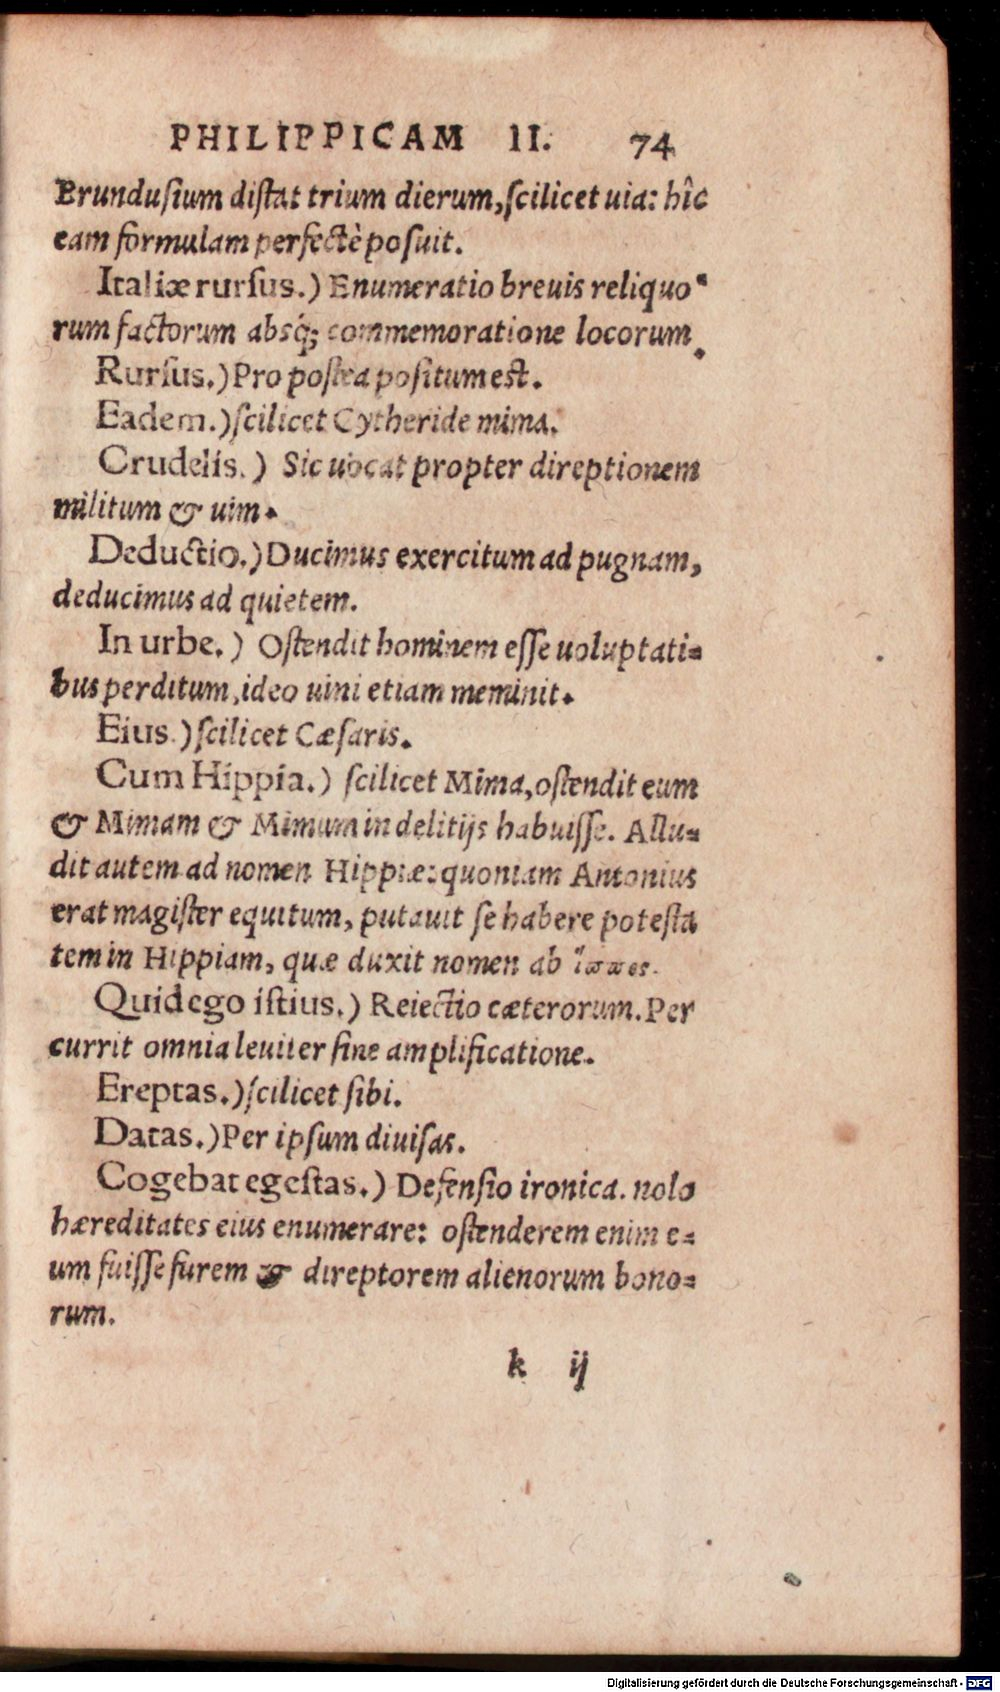 PHILIPPICAM II. 74
Brundusium distat trium dierum, scilicet uia: hîc
eam formulam perfectè posuit.
Italiæ rursus.) Enumeratio breuis reliquo⸗
rum factorum absq́; commemoratione locorum.
Rursus.) Pro postea positum est.
Eadem.) scilicet Cytheride mima.
Crudelis.) Sic uocat propter direptionem
militum & uim.
Deductio.) Ducimus exercitum ad pugnam,
deducimus ad quietem.
In urbe.) Ostendit hominem esse uoluptati⸗
bus perditum, ideo uini etiam meminit.
Eius.) scilicet Cæsaris.
Cum Hippia.) scilicet Mima, ostendit eum
& Mimam & Mimum in delitijs habuisse. Allu⸗
dit autem ad nomen Hippiæ: quoniam Antonius
erat magister equitum, putauit se habere potesta
tem in Hippiam, quæ duxit nomen ab ἵπποσ.
Quid ego istius.) Reiectio cæterorum. Per
currit omnia leuiter sine amplificatione.
Ereptas.) scilicet sibi.
Datas.) Per ipsum diuisas.
Cogebat egestas.) Defensio ironica. nolo
hæreditates eius enumerare: ostenderem enim e⸗
um fuisse furem & direptorem alienorum bono⸗
rum.
k ij
Digitalisierung gefördert durch die Deutsche Forschungsgemeinschaft - DFG